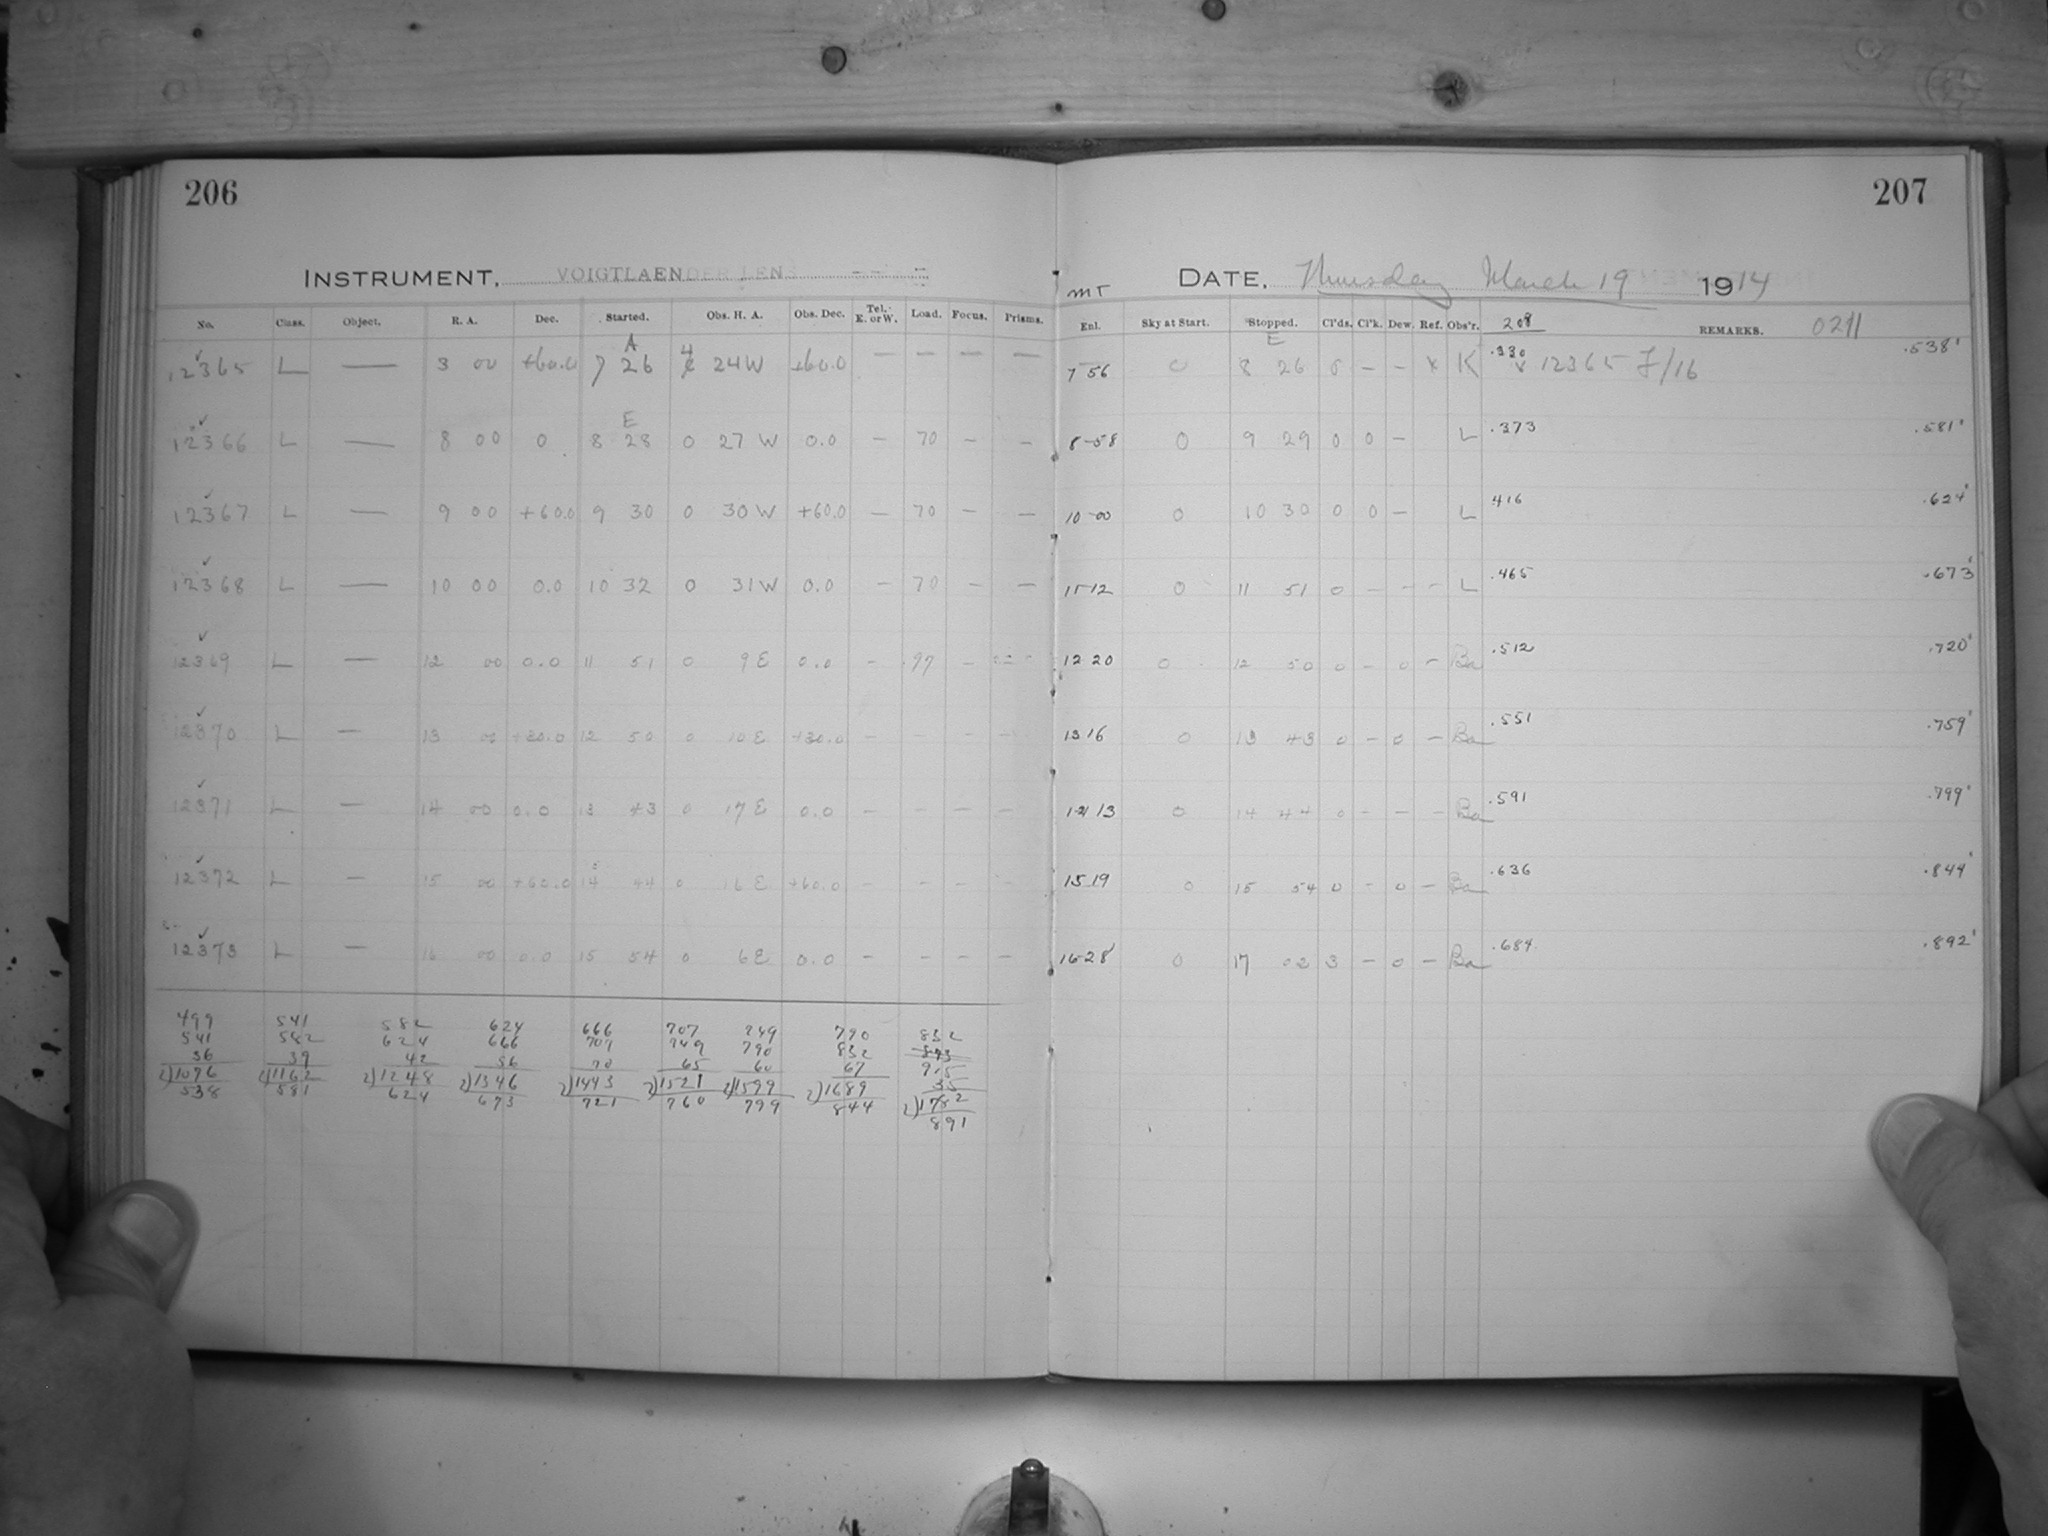 206
207
INSTRUMENT, VOIGTLAENDER LENS
DATE, Thursday March 19 1914
No. Class. Object. R. A. Dec. Started. Obs. H. A. Obs. Dec. Tel. E. or W. Load. Focus. Prisms.
MT
Enl. Sky at Start. Stopped. Cl'ds. Cl'k. Dew. Ref. Obs'r. 208 REMARKS. 0211
A E
12365 L — 3 00 +60.0 7 26 4 24 W +60.0 — — — — 7 56 0 8 26 — — K .330 12365 F/16 .538'
E
12366 L — 8 00 0 8 28 0 27 W 0.0 — 70 — — 8-58 0 9 29 0 0 — L .373 .581'
12367 L — 9 00 +60.0 9 30 0 30 W +60.0 — 70 — — 10-00 0 10 30 0 0 — L .416 .624'
12368 L — 10 00 0.0 10 32 0 31 W 0.0 — 70 — — 11-12 0 11 51 0 - - - L .465 .673'
12369 L — 12 00 0.0 11 51 0 9 E 0.0 - .97 - 12 20 0 12 50 0 - 0 - Ba .512 .720'
12370 L — 13 00 +30.0 12 50 0 10 E +30.0 - - - - 13 16 0 13 43 0 - 0 - Ba .551 .759'
12371 L — 14 00 0.0 13 43 0 17 E 0.0 - - - - 14 13 0 14 44 0 - - - Ba .591 .799'
12372 L — 15 00 +60.0 14 44 0 16 E +60.0 - - - - 15 19 0 15 54 0 - 0 - Ba .636 .844'
12373 L — 16 00 0.0 15 54 0 6 E 0.0 - - - - 16-28 0 17 02 3 - 0 - Ba .684 .892'
499 541 582 624 666 707 749 790 832
541 582 624 666 707 749 790 832 873
36 39 42 56 70 65 60 67 915
2)1076 2)1162 2)1248 2)1346 2)1443 2)1521 2)1599 2)1689 35
538 581 624 673 721 760 799 844 2)1782
891